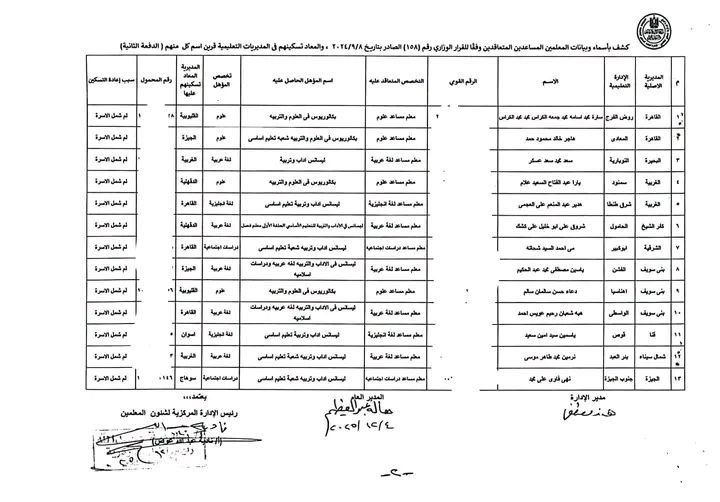 كشف بأسماء وبيانات المعلمين المساعدين المتعاقدين وفقًا للقرار الوزاري رقم (١٥٨) الصادر بتاريخ ٢٠٢٤/٩/٨ ، والمعاد تسكينهم فى المديريات التعليمية قرين اسم كل منهم ( الدفعة الثانية)
م المديرية الاصلية الإدارة التعليمية الاســـم الرقم القومي التخصص المتعاقد عليه اسم المؤهل الحاصل عليه تخصص المؤهل المديرية المعاد تسكينهم عليها رقم المحمول سبب إعادة التسكين
١ القاهرة روض الفرج سارة محمد اسامه محمد جمعه الكراس ٢ معلم مساعد علوم بكالوريوس فى العلوم والتربيه علوم القليوبية لم شمل الاسرة
٢ القاهرة المعادى هاجر خالد محمود حمد معلم مساعد علوم بكالوريوس فى العلوم والتربيه شعبة تعليم اساسى علوم الجيزة لم شمل الاسرة
٣ البحيرة النوبارية سعد محمد سعد عسكر معلم مساعد لغة عربية ليسانس اداب وتربية لغة عربية الغربية لم شمل الاسرة
٤ الغربية سمنود يارا عبد الفتاح السعيد علام معلم مساعد علوم بكالوريوس فى العلوم والتربيه علوم الدقهلية لم شمل الاسرة
٥ الغربية شرق طنطا هدير عبد المنعم على العجمى معلم مساعد لغة انجليزية ليسانس اداب وتربية تعليم اساسى لغة انجليزية القاهرة لم شمل الاسرة
٦ كفر الشيخ الحامول شروق على ابو خليل على كشك معلم مساعد لغة عربية ليسانس في الاداب والتربية للتعليم الأساسي الحلقة الأولى معلم فصل لغة عربية الدقهلية لم شمل الاسرة
٧ الشرقية ابوكبير مى احمد السيد شحاته معلم مساعد دراسات اجتماعية ليسانس اداب وتربيه شعبة تعليم اساسى دراسات اجتماعية القاهرة لم شمل الاسرة
٨ بنى سويف الفشن ياسين مصطفى محمد عبد الحكيم معلم مساعد لغة عربية ليسانس فى الاداب والتربيه لغه عربيه ودراسات اسلاميه لغة عربية الجيزة لم شمل الاسرة
٩ بنى سويف اهناسيا دعاء حسن سالمان سالم معلم مساعد علوم بكالوريوس فى العلوم والتربيه علوم القليوبية لم شمل الاسرة
١٠ بنى سويف الواسطى هبه شعبان رحيم عويس احمد معلم مساعد لغة عربية ليسانس فى الاداب والتربيه لغه عربيه ودراسات اسلاميه لغة عربية القاهرة لم شمل الاسرة
١١ قنا قوص ياسمين سيد امين سعيد معلم مساعد لغة انجليزية ليسانس اداب وتربية تعليم اساسى لغة انجليزية اسوان لم شمل الاسرة
١٢ شمال سيناء بئر العبد نرمين محمد طاهر موسى معلم مساعد لغة عربية ليسانس اداب وتربيه شعبة تعليم اساسى لغة عربية الغربية لم شمل الاسرة
١٣ الجيزة جنوب الجيزة نهى فاوى على محمد معلم مساعد دراسات اجتماعية ليسانس اداب وتربيه شعبة تعليم اساسى دراسات اجتماعية سوهاج لم شمل الاسرة
مدير الإدارة
المدير العام
هالة عبد العظيم
٢٠٢٥/١٢/٤
يعتمد،،،،
رئيس الإدارة المركزية لشئون المعلمين
-٢-